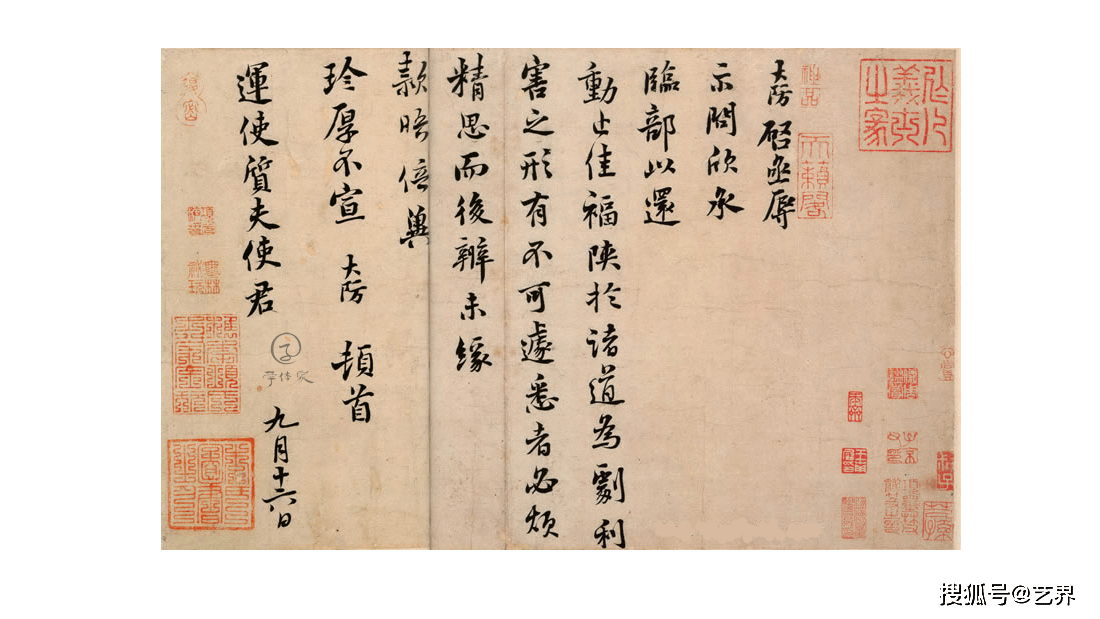 大防啓亟辱
示問欣承
臨部以還
動止佳福陝於諸道為劇利
害之形有不可遽悉者必煩
精思而後辦未緣
款晤倍興
珍厚不宣 大防 頓首
運使質夫使君
九月十六日
天籟閣
搜狐号@艺界